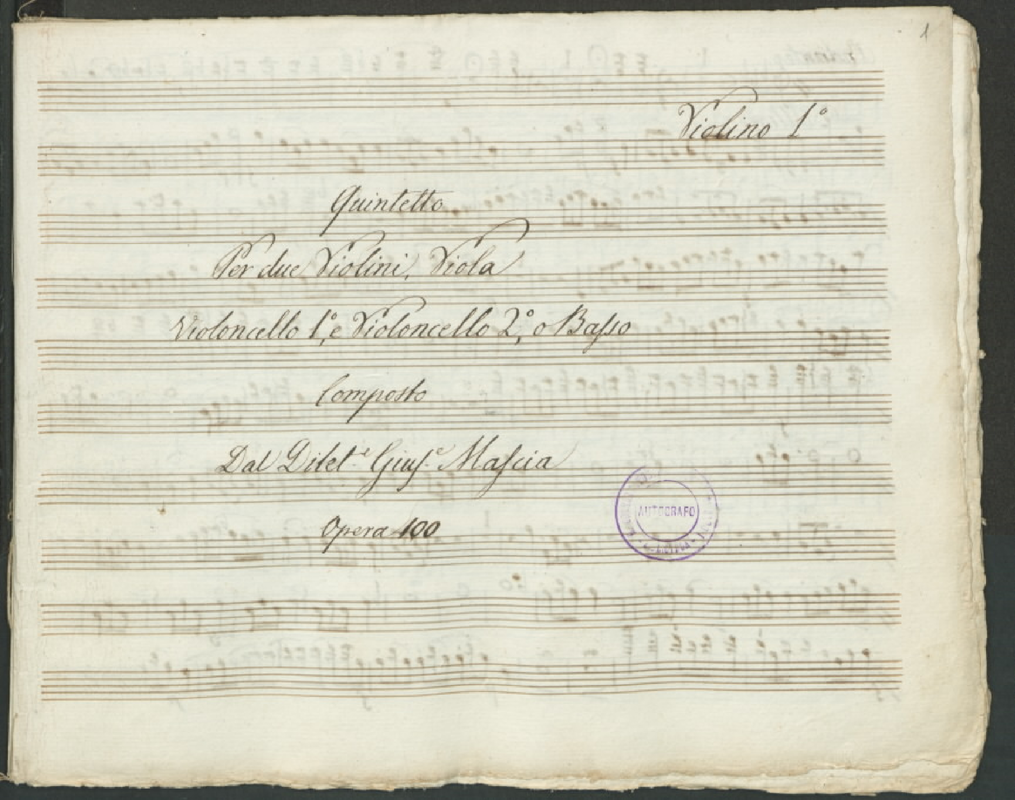 1
Violino 1º
Quintetto
Per due Violini, Viola
Violoncello 1º, e Violoncello 2º, o Baſso
Composto
Dal Dilet.e Giuſ.e Maſcia
Opera 100
AUTOGRAFO